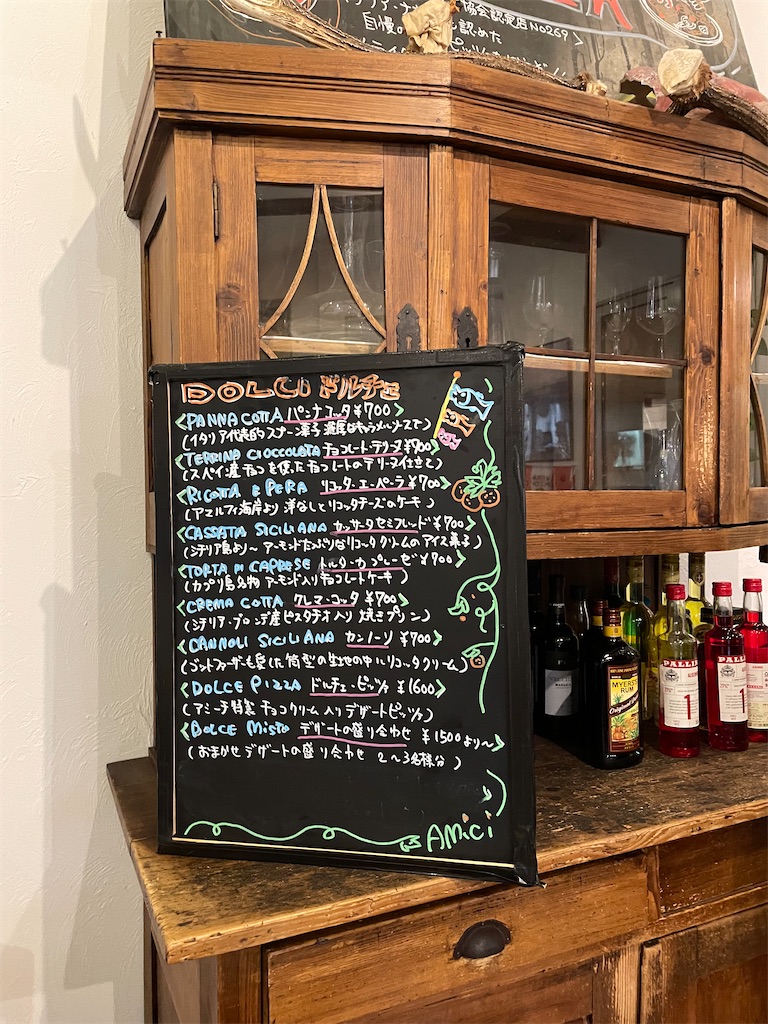 協会認定店No269
自慢の
認めた
DOLCI ドルチェ
<PANNA COTTA パンナコッタ ¥700>
(イタリア代表的スプーン菓子 濃厚なキャラメルソースで)
<TERRINA CIOCCOLATA チョコレートテリーヌ ¥900>
(スペイン産チョコを使たチョコレートのテリーヌ仕立て)
<RICOTTA E PERA リコッタ・エ・ペーラ ¥700>
(アマルフィ海岸より 洋なしとリコッタチーズのケーキ)
<CASSATA SICILIANA カッサータセミフレッド ¥700>
(シチリア島より〜 アーモンドたっぷりなリコッタクリームのアイス菓子)
<TORTA DI CAPRESE トルタ・カプレーゼ ¥700>
(カプリ島名物 アーモンド入りチョコレートケーキ)
<CREMA COTTA クレマ・コッタ ¥700>
(シチリア・ブロンテ産ピスタチオ入り 焼きプリン)
<CANNOLI SICILIANA カンノーリ ¥700>
(ゴットファーザーも愛した 筒型の生地の中にリコッタクリーム)
<DOLCE PIZZA ドルチェ・ピッツァ ¥1600>
(アミーチ特製 チョコクリーム入りデザートピッツァ)
<DOLCE MISTO デザートの盛り合わせ ¥1500より〜>
(おまかせデザートの盛り合わせ 2〜3名様分)
AMiCi
MYERS'S
RUM
Original
PALLINI
1
PALLINI
1